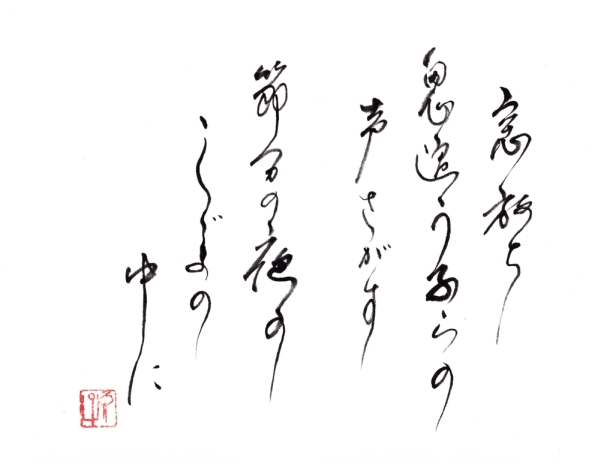 窓放ち
鬼追う子らの
声さがす
節分の夜の
しじまの
中に